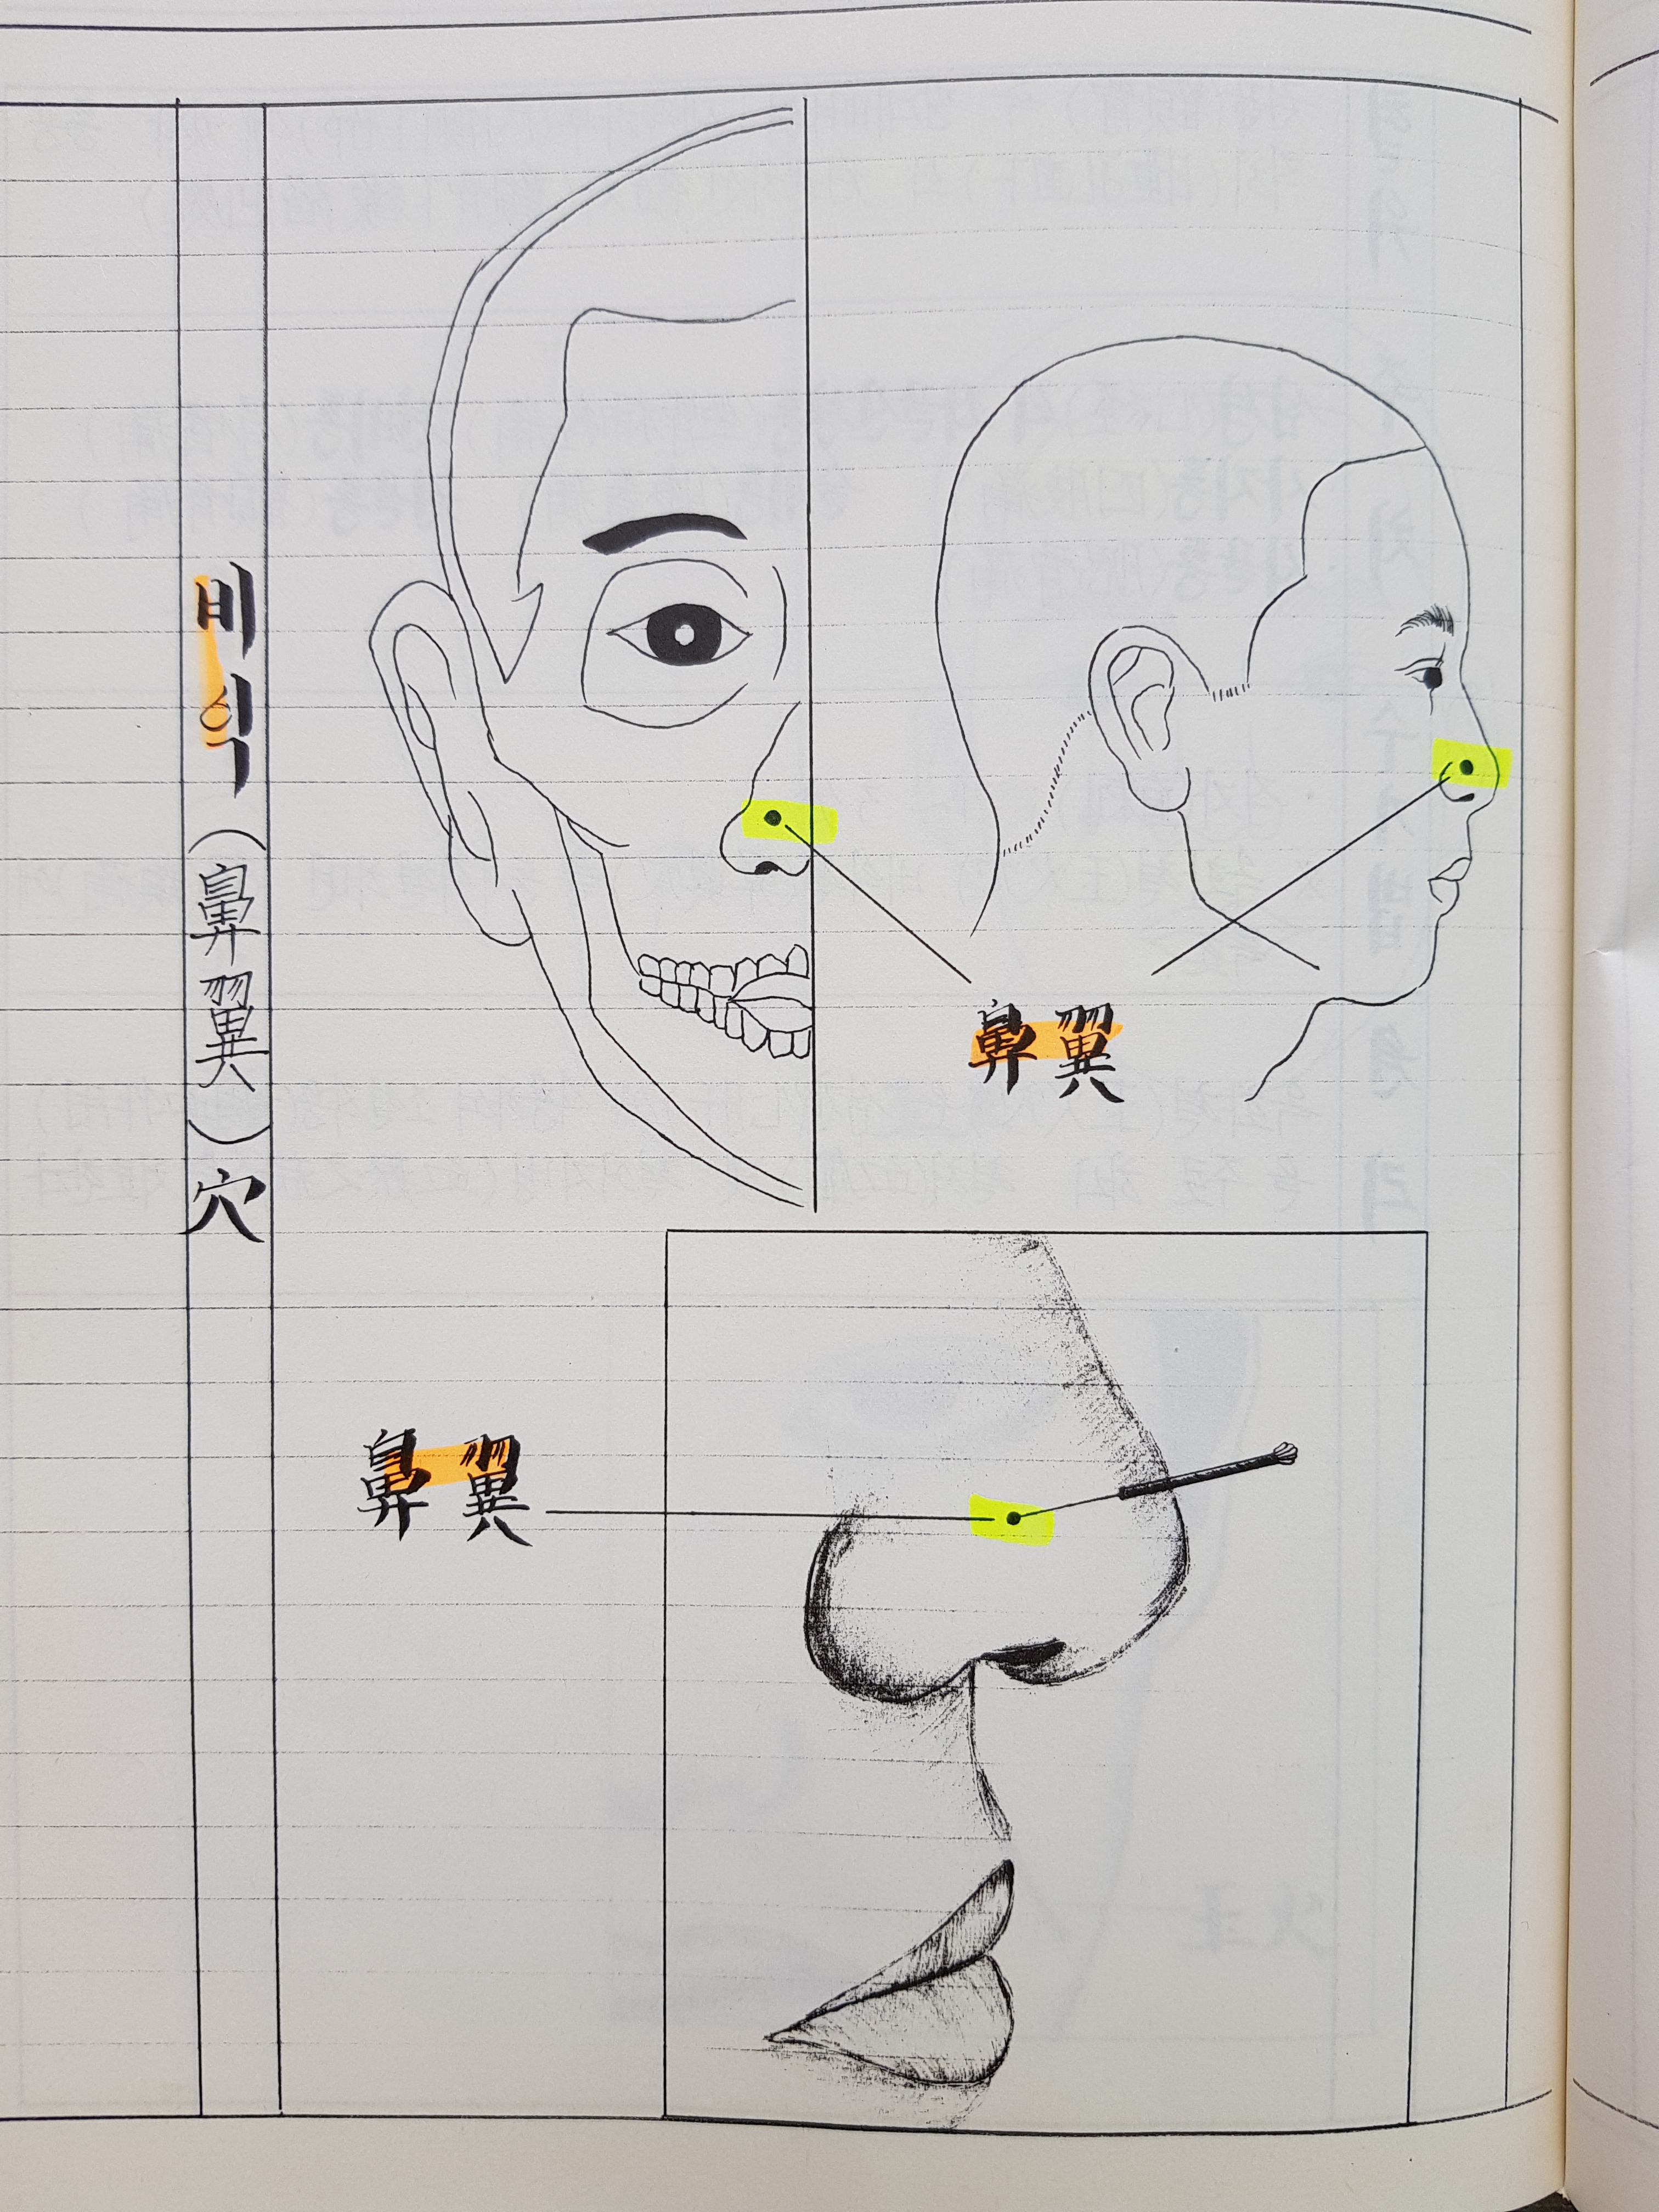 비익(鼻翼)穴
鼻翼
鼻翼